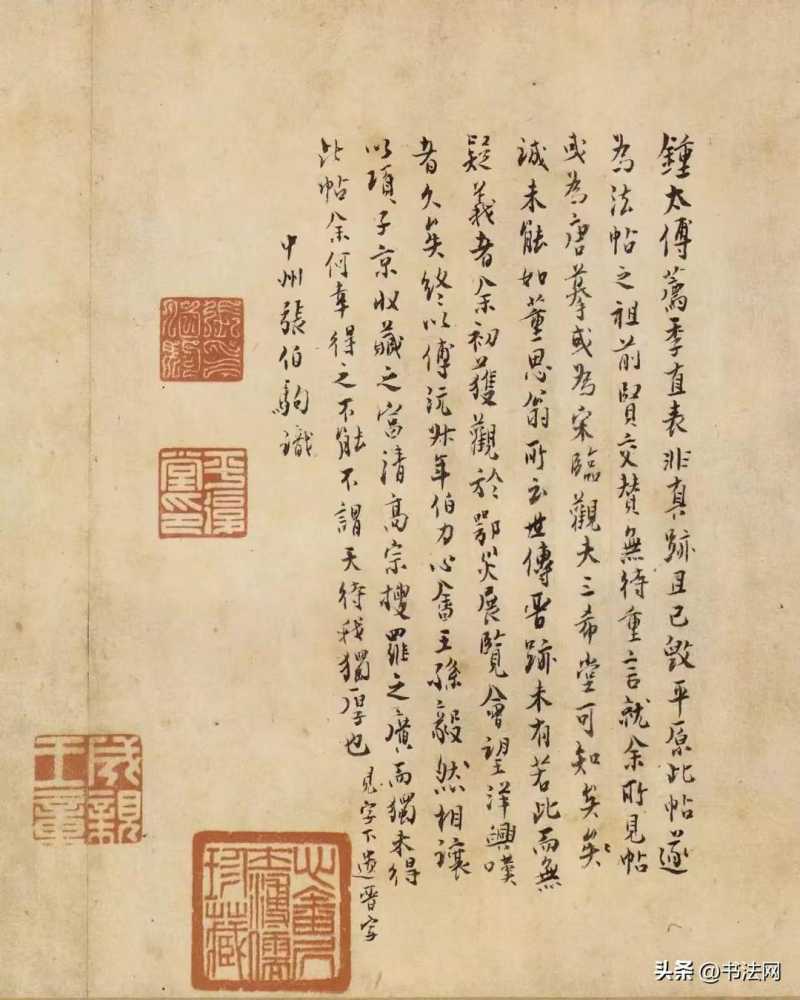 鍾太傅薦季直表非真跡且已毀平原此帖遂
為法帖之祖前賢交贊無待重言就余所見帖
或為唐摹或為宋臨觀夫三希堂可知矣矣
誠未能如董思翁所云世傳晉跡未有若此而無
疑義者余初獲觀於鄂災展覽會望洋興嘆
者久矣終以傅沅叔年伯力心畬王孫毅然相讓
以項子京收藏之富清高宗搜羅之廣而獨未得
此帖余何幸得之不能不謂天待我獨厚也 見字下遺晉字
中州張伯駒識
平復
堂印
成親
王章
溥儒
珍藏
头条 @书法网